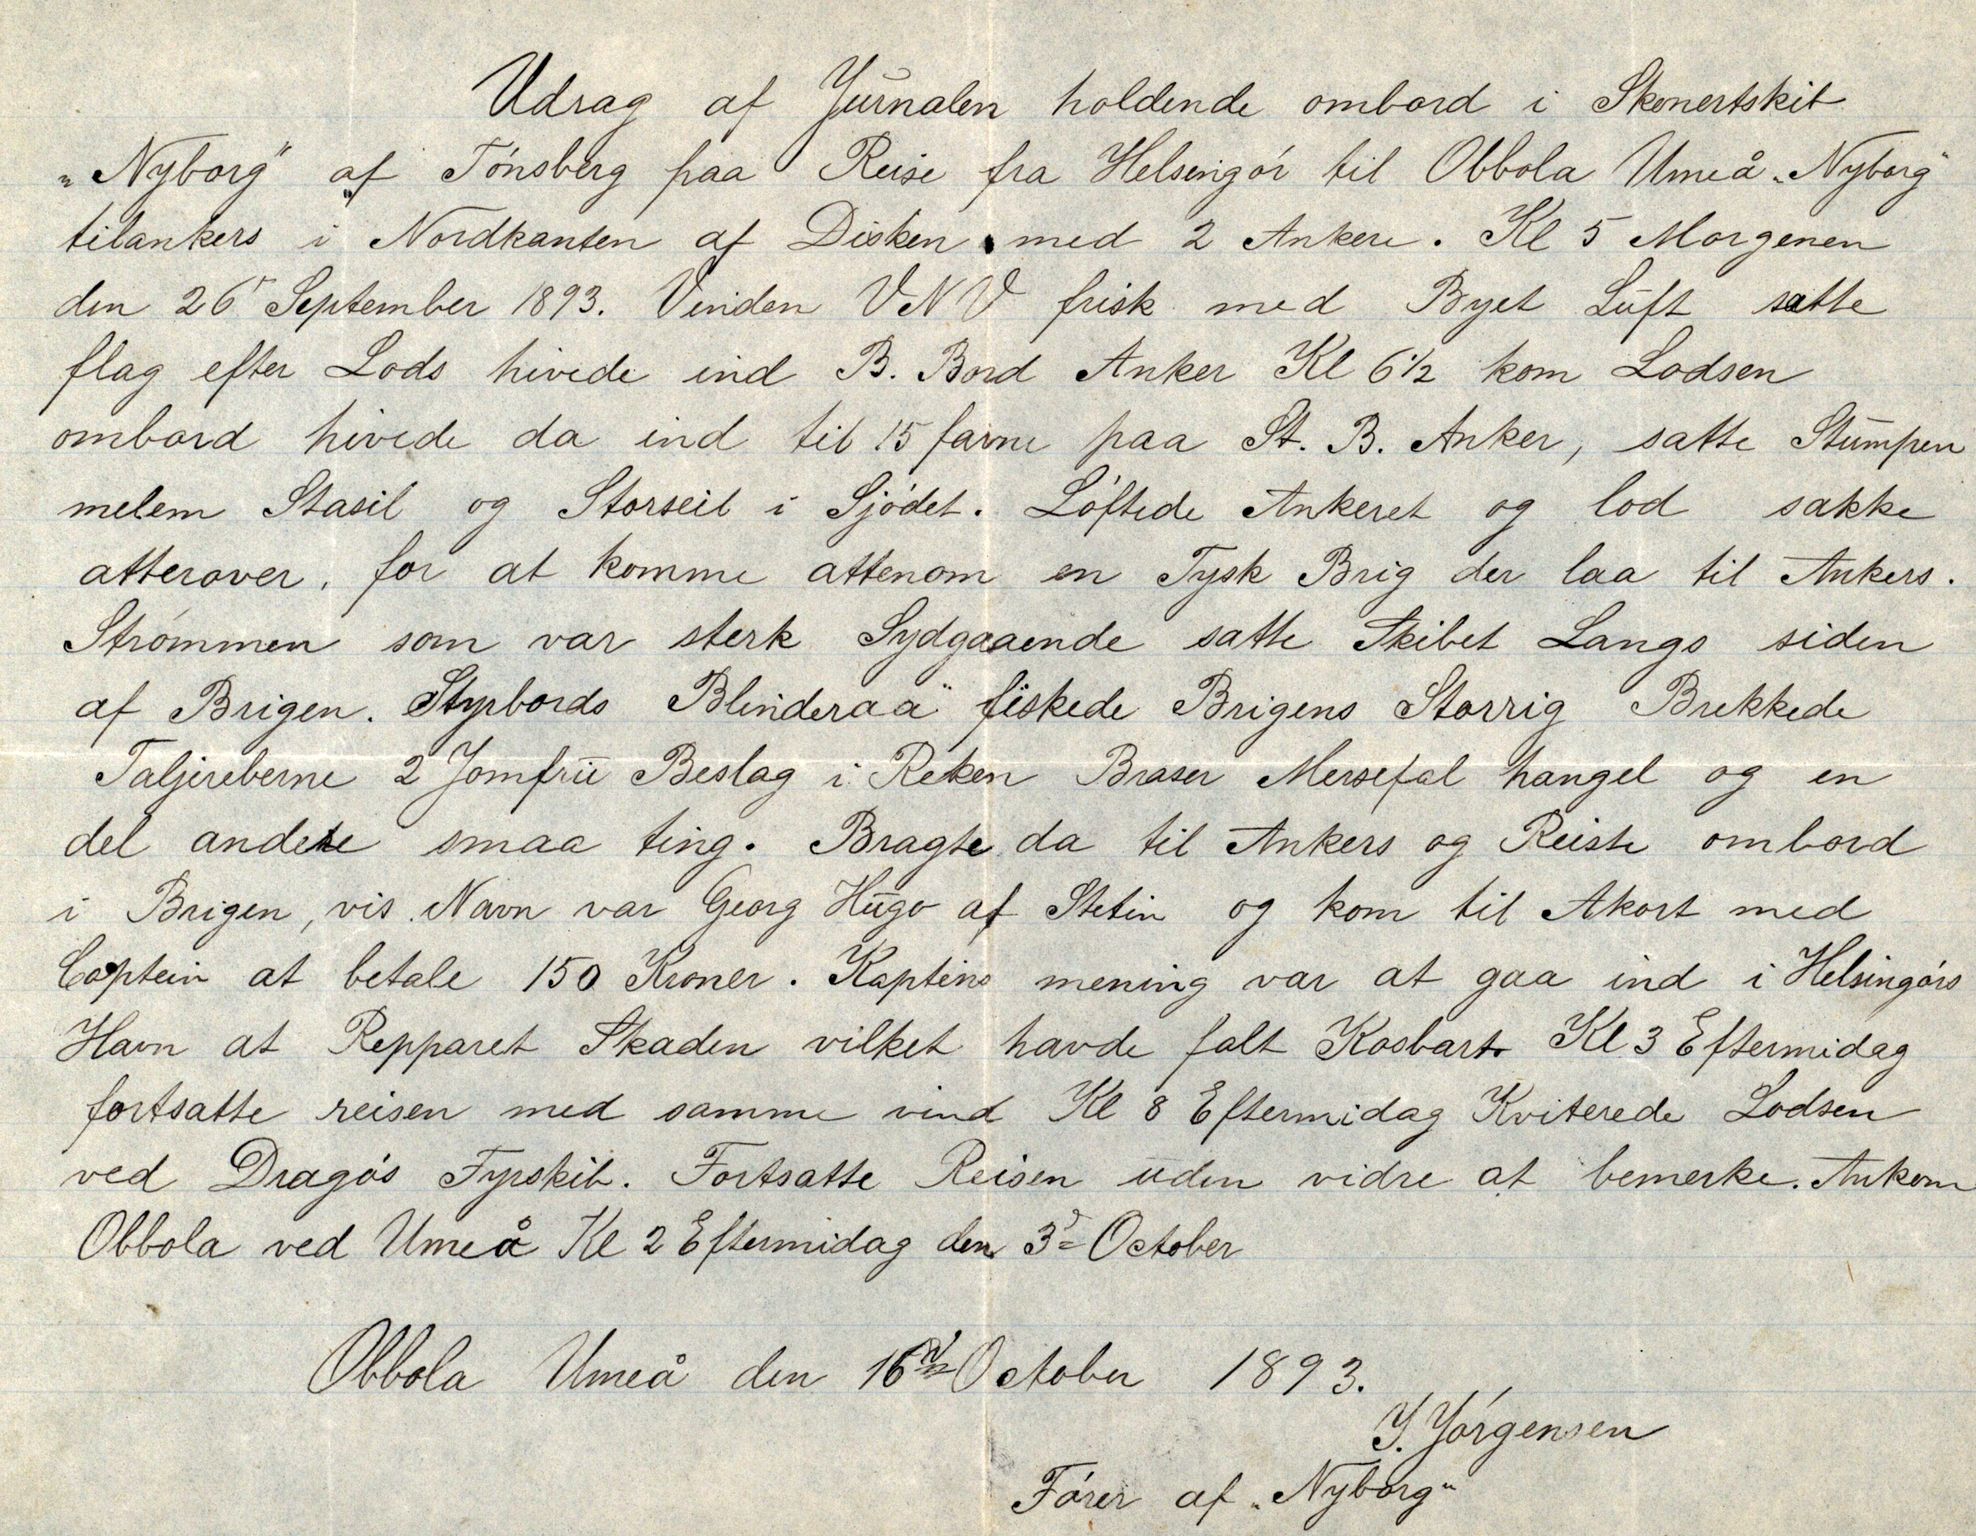 Udrag af Jurnalen holdende ombord i Skonertskib
„Nyborg" af Tónsberg paa Reise fra Helsingór til Obbola Umeå „Nyborg"
tilankers i Nordkanten af Disken med 2 Ankere. Kl 5 Morgenen
den 26 September 1893. Vinden VNV frisk med Byet Luft satte
flag efter Lods hivede ind B. Bord Anker Kl 6½ kom Lodsen
ombord hivede da ind til 15 favne paa St. B. Anker, satte Stumpen
melem Stasil og Storseil i Sjódet. Lóftede Ankeret og lod sakke
atterover, for at komme attenom en Tysk Brig der laa til Ankers.
Strómmen som var sterk Sydgaaende satte Skibet Langs siden
af Brigen. Styrbords Blinderaa fiskede Brigens Storrig Brekkede
Taljereberne 2 Jomfru Beslag i Reken Braser Mersefal hangel og en
del andete smaa ting. Bragte da til Ankers og Reiste ombord
i Brigen, vis Navn var Georg Hugo af Stetin og kom til Akort med
Captein at betale 150 Kroner. Kaptens mening var at gaa ind i Helsingórs
Havn at Repparet Skaden vilket havde falt Kosbart Kl 3 Eftermidag
fortsatte reisen med samme vind Kl 8 Eftermidag Kviterede Lodsen
ved Dragós Fyrskib. Fortsatte Reisen uden vidre at bemerke. Ankom
Obbola ved Umeå Kl 2 Eftermidag den 3d October
Obbola Umeå den 16 October 1893.
J. Jórgensen
Fórer af „Nyborg"